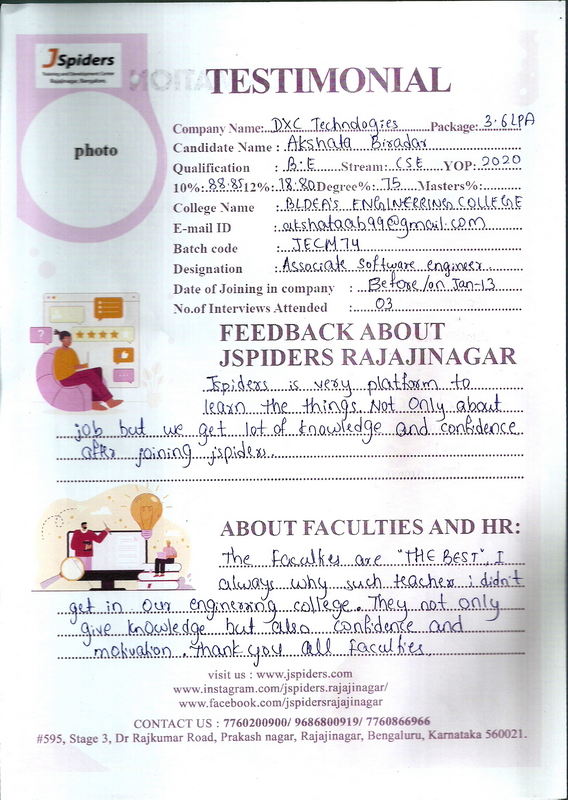 JSpiders
Training and Development Center
Rajajinagar, Bangalore.
TESTIMONIAL
photo
Company Name: DXC Technologies Package: 3.6LPA
Candidate Name : Akshata Biradar
Qualification : B.E Stream: CSE YOP: 2020
10%: 88.85 12%: 78.80 Degree%: 75 Masters%:
College Name : BLDEA'S ENGINERRING COLLEGE
E-mail ID : akshataab99@gmail.com
Batch code : JECM74
Designation : Associate software engineer
Date of Joining in company : Before/on Jan-13
No.of Interviews Attended : 03
FEEDBACK ABOUT
JSPIDERS RAJAJINAGAR
Jspiders is very platform to
learn the things. Not Only about
job but we get lot of knowledge and confidence
after joining jspiders.
ABOUT FACULTIES AND HR:
The faculties are "THE BEST". I
always why such teacher i didn't
get in our enginerring college. They not only
give knowledge but also confidence and
motivation. Thank you all faculties.
visit us : www.jspiders.com
www.instagram.com/jspiders.rajajinagar/
www.facebook.com/jspidersrajajinagar
CONTACT US : 7760200900/ 9686800919/ 7760866966
#595, Stage 3, Dr Rajkumar Road, Prakash nagar, Rajajinagar, Bengaluru, Karnataka 560021.